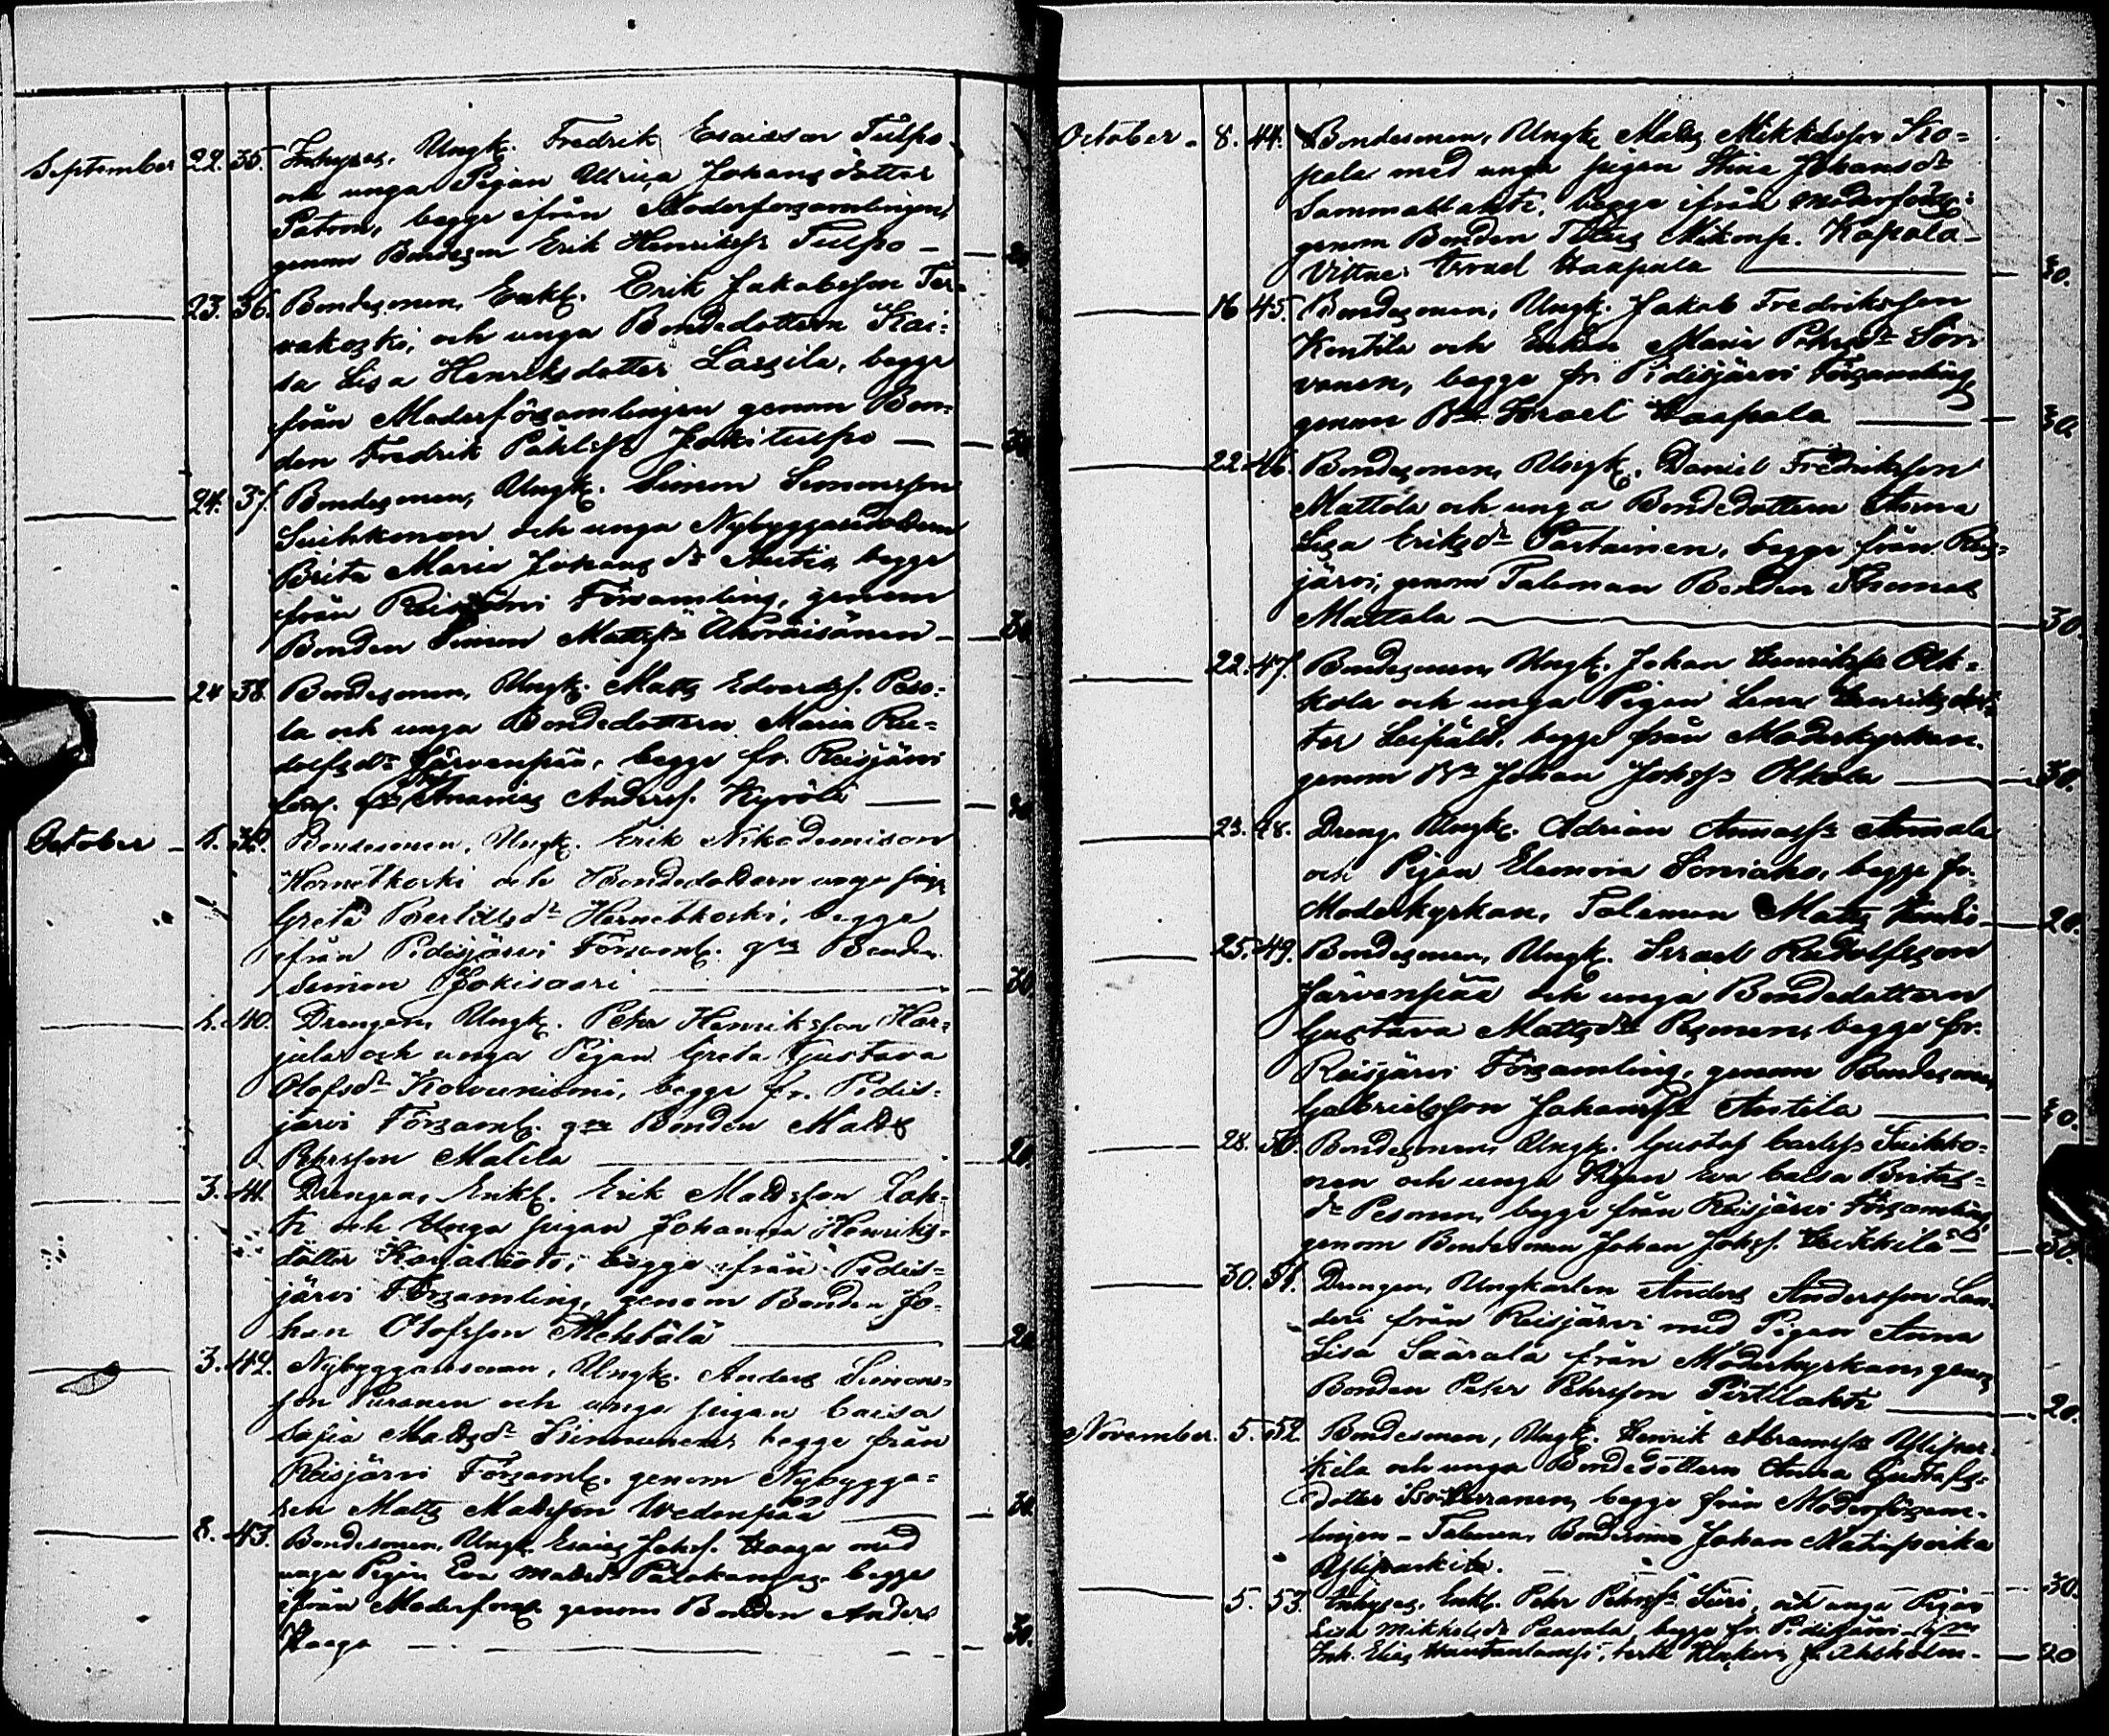 September 22. 35. Inhyses. Ungk. Fredrik Esaiasson Tulpo
och unga Pigan Ulrica Johans dotter
Patron, begge ifrån Moderforsamlingen,
genom Bondeson Erik Henrikss: Tulpo —
23. 36. Bondesonen, Enkl. Erik Jakobsson Ter-
vakoski, och unga Bondedottern Kai-
sa Lisa Henriksdotter Lassila, begge
från Moderförsamlingen genom Bon-
den Fredrik Jokitulpo — 30
24. 37. Bondesonen, Ungk. Simon Simonsson
Suihkonen och unga Nybyggaredottern
Brita Maria Johans dr Autio, begge
från Reisjärvi Församling, genom
Bonden Simon Mattss: — 30
24 38. Bondesonen, Ungk. Matts Edvardss. Peso-
la och unga Bondedottern Maria Ru-
dolfs dr Järvenpää, begge fr. Reisjärvi
förs. Ananias Anderss. Kyrölä — 30
October 1. 39. Bondesonen, Ungk. Erik Nikodemisson
Hernetkoski och Bondedottern unga pig.
Greta Bertills dr Hernetkoski, begge
från Pidisjärvi Församl. gm Bonden
Simon Jokisaari — 30
2. 40. Drengen, Ungk. Pehr Henriksson Har-
jula och unga Pigan Greta Gustava
Olofs dr Koivuniemi, begge fr. Pidis-
järvi Församl. gm Bonden Matts
Pehrsson Matila — 20.
3. 41. Drengen, Enkl. Erik Mattsson Lah-
ti och Unga pigan Johanna Henriks-
dotter Karjalkoto, begge ifrån Pidis-
järvi Församling, genom Bonden Jo-
han Olofsson Mehtälä — 20
3. 42. Nybyggaresonen, Ungk. Anders Simons-
son Puranen och unga pigan Caisa
Safia Matts dr Kinnunen, begge från
Reisjärvi Församl. genom Nybygga-
ren Matts Mattsson Wedenpää — 30.
8. 43. Bondesonen, Ungk. Esaias Johss. Haaga med
unga Pigan Eva Matts dr begge
ifrån Moderförs. genom Bonden Anders
Haaga — 30.
October 8. 44. Bondesonen, Ungk. Matts Mikkelsson Ko-
pala med unga pigan Stina Johans dr
Sammallahti, begge ifrån moderförs:
genom Bonden Kopala —
Vittne: Israel Haapala — 30.
16 45. Bondesonen, Ungk. Jakob Fredriksson
Kontila och Enkan Maria Pehrs dr Sor-
vanen, begge fr. Pidisjärvi Församling
genom Bn Israel Haapala — 30.
22. 46. Bondesonen, Ungk. Daniel Fredriksson
Mattola och unga Bondedottern Anna
Lisa Eriks dr Partainen, begge från Reis-
järvi, genom Taleman Bonden Thomas
Mattola — 30.
22. 47. Bondesonen, Ungk. Johan Henrikss: Olk-
kola och unga Pigan Lena Henriksdot-
ter Leipälä, begge från Moderkyrkan.
genom Bn Johan Johss: Olkkola — 30.
23. 48. Dreng. Ungk. Adrian Annala
och Pigan Elenora begge fr.
Moderkyrkan, Taleman Matts — 20.
25. 49. Bondesonen, Ungk. Israel Rudolfsson
Järvenpää och unga Bondedottern
Gustava Matts dr Pesonen, begge fr.
Reisjärvi Församling, genom Bondesonen
Gabrielsson Antila — 30.
28. 50. Bondesonen, Ungk. Gustaf Carlss: Suihko-
nen och unga Pigan Eva Caisa Britas-
dr Pesonen, begge från Reisjärvi Församling,
genom Bondesonen Johan Johss. Heikkilä — 30.
30. 51. Drengen, Ungkarlen Anders Andersson Lan-
deri från Reisjärvi med Pigan Anna
Lisa Säärälä från Moderkyrkan, genom
Bonden Pehr Pehrsson Pirttilahti — 20.
November. 5. 52. Bondesonen, Ungk. Henrik Abramss: Ylipar-
kila och unga Bondedottern Anna Gustafs-
dotter begge från Moderförsam-
lingen – Taleman, Bondesonen Johan
Yliparkila. — 30.
5. 53. Inhyses, Enkl. Pehr Pehrss: Siiri, och unga Pigan
Lisa Mikkels dr Paavola, begge fr. Pidisjärvi gm
Inh. Elias — 20